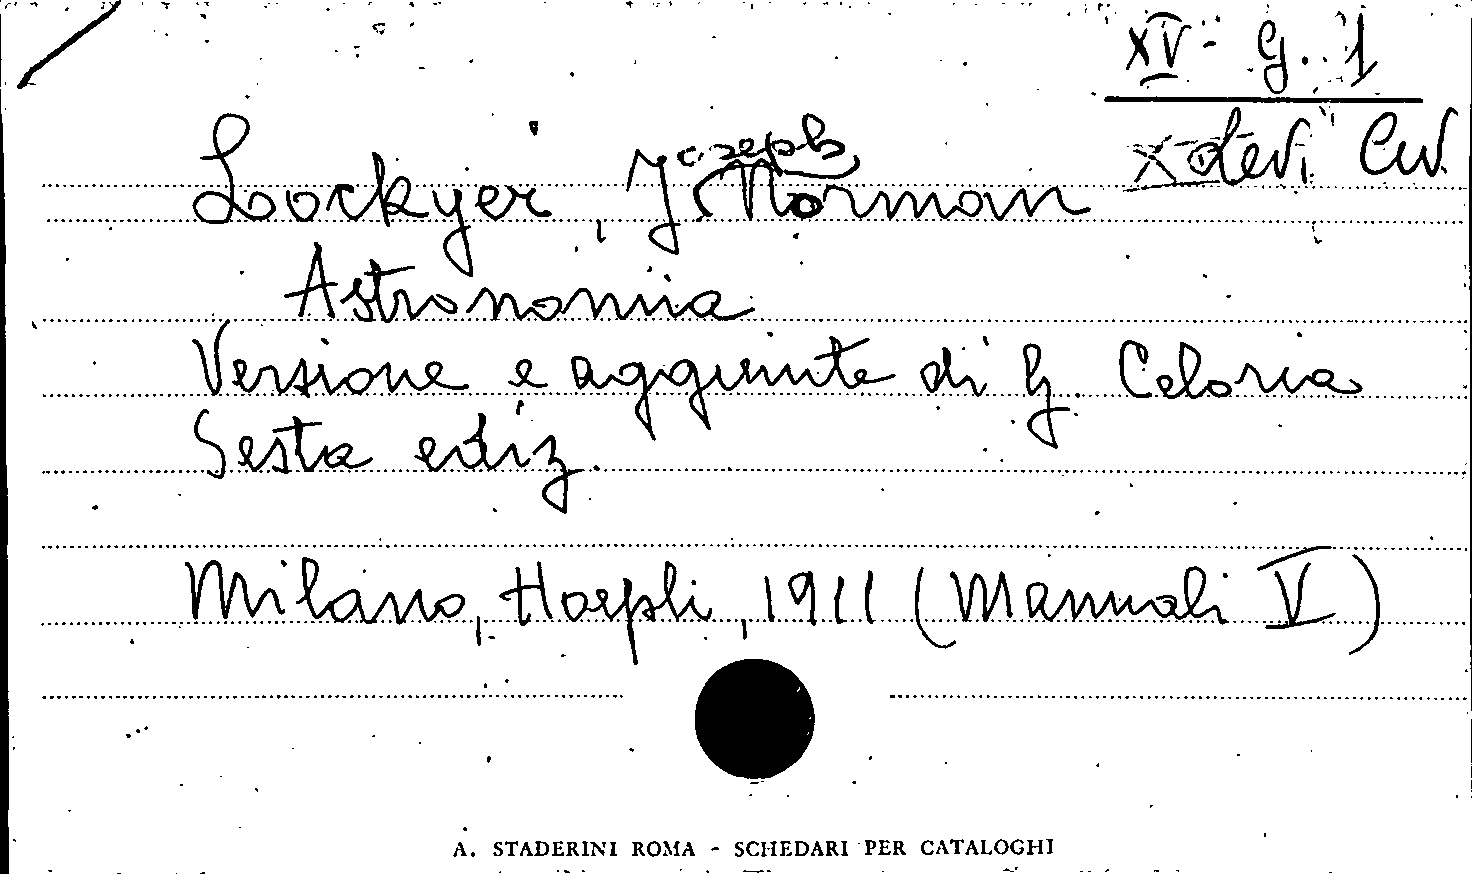 XV - G. 1
Lockyer, Joseph Norman
Astronomia
Versione e aggiunte di G. Celoria
Sesta ediz.
Milano, Hoepli, 1911 (Manuali V)
A. STADERINI ROMA - SCHEDARI PER CATALOGHI